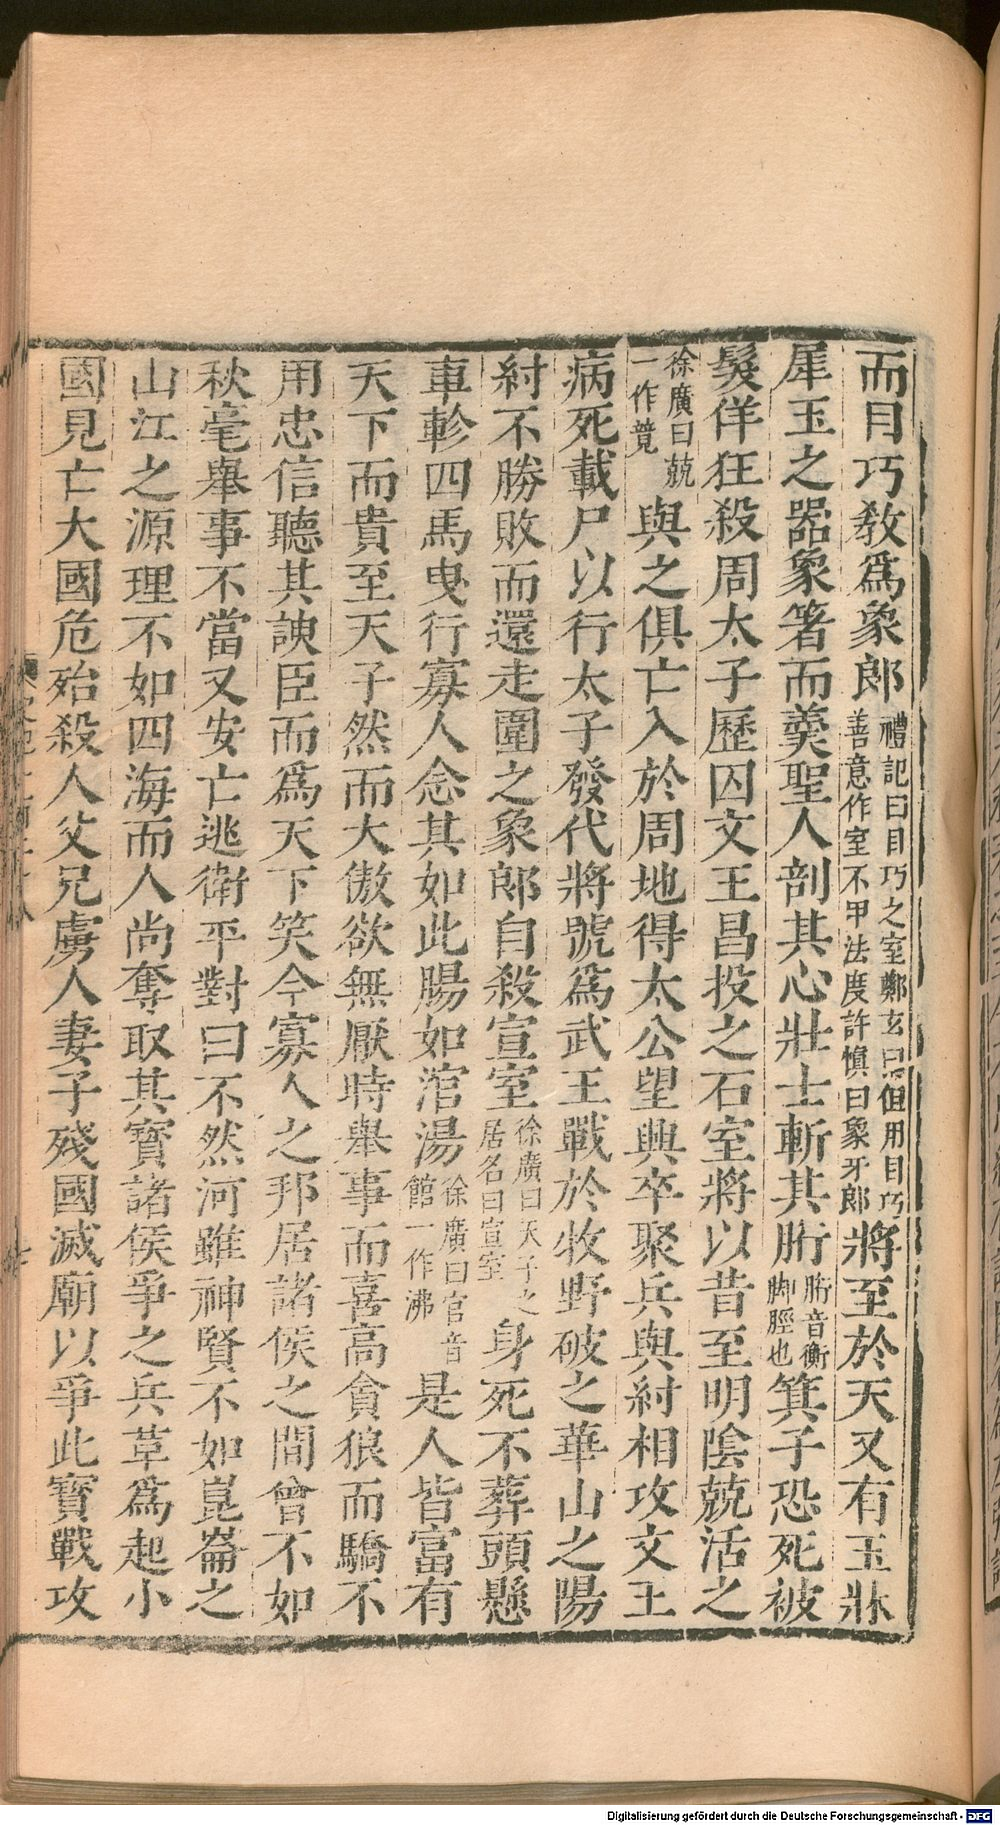 而目巧教爲象郎禮記曰目巧之室鄭玄曰但用目巧善意作室不由法度許愼曰象牙郎將至於天又有玉牀
犀玉之器象箸而羹聖人剖其心壯士斬其胻胻音衡脚脛也箕子恐死被
髮佯狂殺周太子歷囚文王昌投之石室將以昔至明陰兢活之
徐廣曰兢一作竟與之俱亡入於周地得太公望興卒聚兵與紂相攻文王
病死載尸以行太子發代將號爲武王戰於牧野破之華山之陽
紂不勝敗而還走圍之象郎自殺宣室徐廣曰天子之居名曰宣室身死不葬頭懸
車軫四馬曳行寡人念其如此腸如涫湯徐廣曰官音館一作沸是人皆富有
天下而貴至天子然而大傲欲無厭時舉事而喜高貪狼而驕不
用忠信聽其諛臣而爲天下笑今寡人之邦居諸侯之間曾不如
秋毫舉事不當又安亡逃衛平對曰不然河雖神賢不如崑崙之
山江之源理不如四海而人尚奪取其寶諸侯爭之兵革爲起小
國見亡大國危殆殺人父兄虜人妻子殘國滅廟以爭此寶戰攻
Digitalisierung gefördert durch die Deutsche Forschungsgemeinschaft - DFG